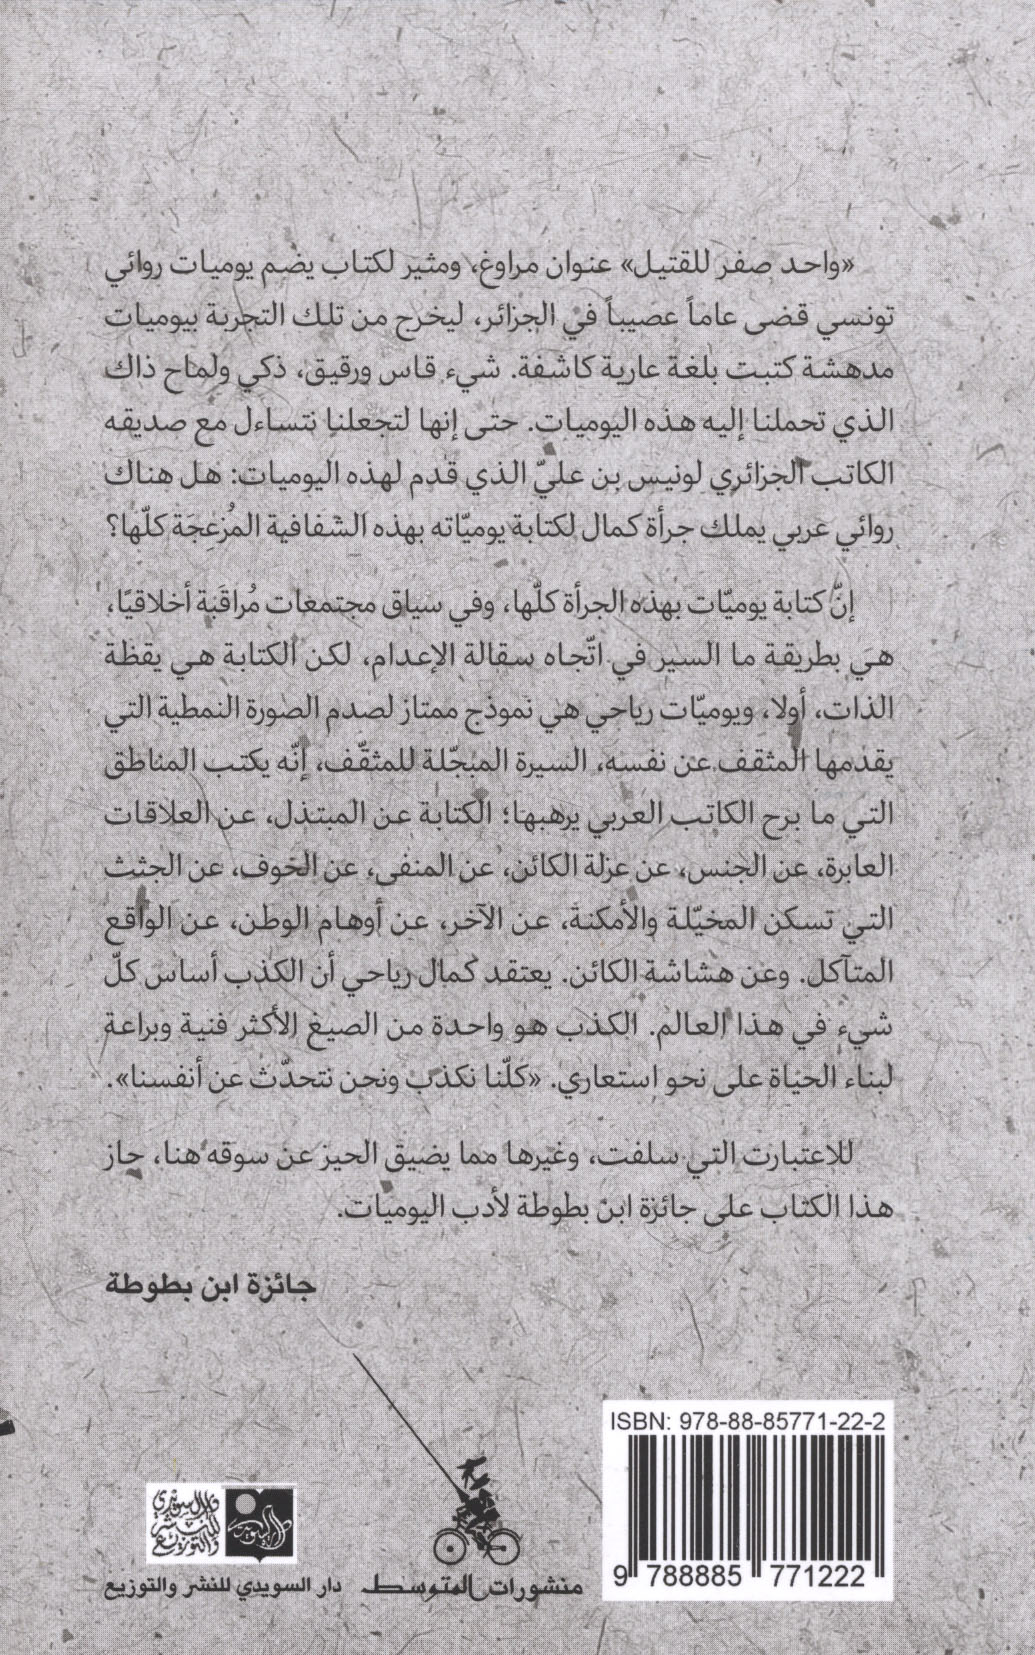 «واحد صفر للقتيل» عنوان مراوغ، ومثير لكتاب يضم يوميات روائي
تونسي قضى عاماً عصيباً في الجزائر، ليخرج من تلك التجربة بيوميات
مدهشة كتبت بلغة عارية كاشفة. شيء قاس ورقيق، ذكي ولماح ذاك
الذي تحملنا إليه هذه اليوميات. حتى إنها لتجعلنا نتساءل مع صديقه
الكاتب الجزائري لونيس بن عليّ الذي قدم لهذه اليوميات: هل هناك
روائي عربي يملك جرأة كمال لكتابة يوميّاته بهذه الشّفافية المُزعِجَة كلّها؟
إنّ كتابة يوميّات بهذه الجرأة كلّها، وفي سياق مجتمعات مُراقَبَة أخلاقيًا،
هي بطريقة ما السير في اتّجاه سقالة الإعدام، لكن الكتابة هي يقظة
الذات، أولا، ويوميّات رياحي هي نموذج ممتاز لصدم الصورة النمطية التي
يقدمها المثقف عن نفسه، السيرة المبجّلة للمثقّف، إنّه يكتب المناطق
التي ما برح الكاتب العربي يرهبها؛ الكتابة عن المبتذل، عن العلاقات
العابرة، عن الجنس، عن عزلة الكائن، عن المنفى، عن الخوف، عن الجثث
التي تسكن المخيّلة والأمكنة، عن الآخر، عن أوهام الوطن، عن الواقع
المتآكل. وعن هشاشة الكائن. يعتقد كمال رياحي أن الكذب أساس كلّ
شيء في هذا العالم. الكذب هو واحدة من الصيغ الأكثر فنية وبراعة
لبناء الحياة على نحو استعاري. «كلّنا نكذب ونحن نتحدّث عن أنفسنا».
للاعتبارت التي سلفت، وغيرها مما يضيق الحيز عن سوقه هنا، حاز
هذا الكتاب على جائزة ابن بطوطة لأدب اليوميات.
جائزة ابن بطوطة
ISBN: 978-88-85771-22-2
9 788885 771222
منشورات المتوسط
دار السويدي للنشر والتوزيع
السويدي
دار السويدي
للنشر
والتوزيع